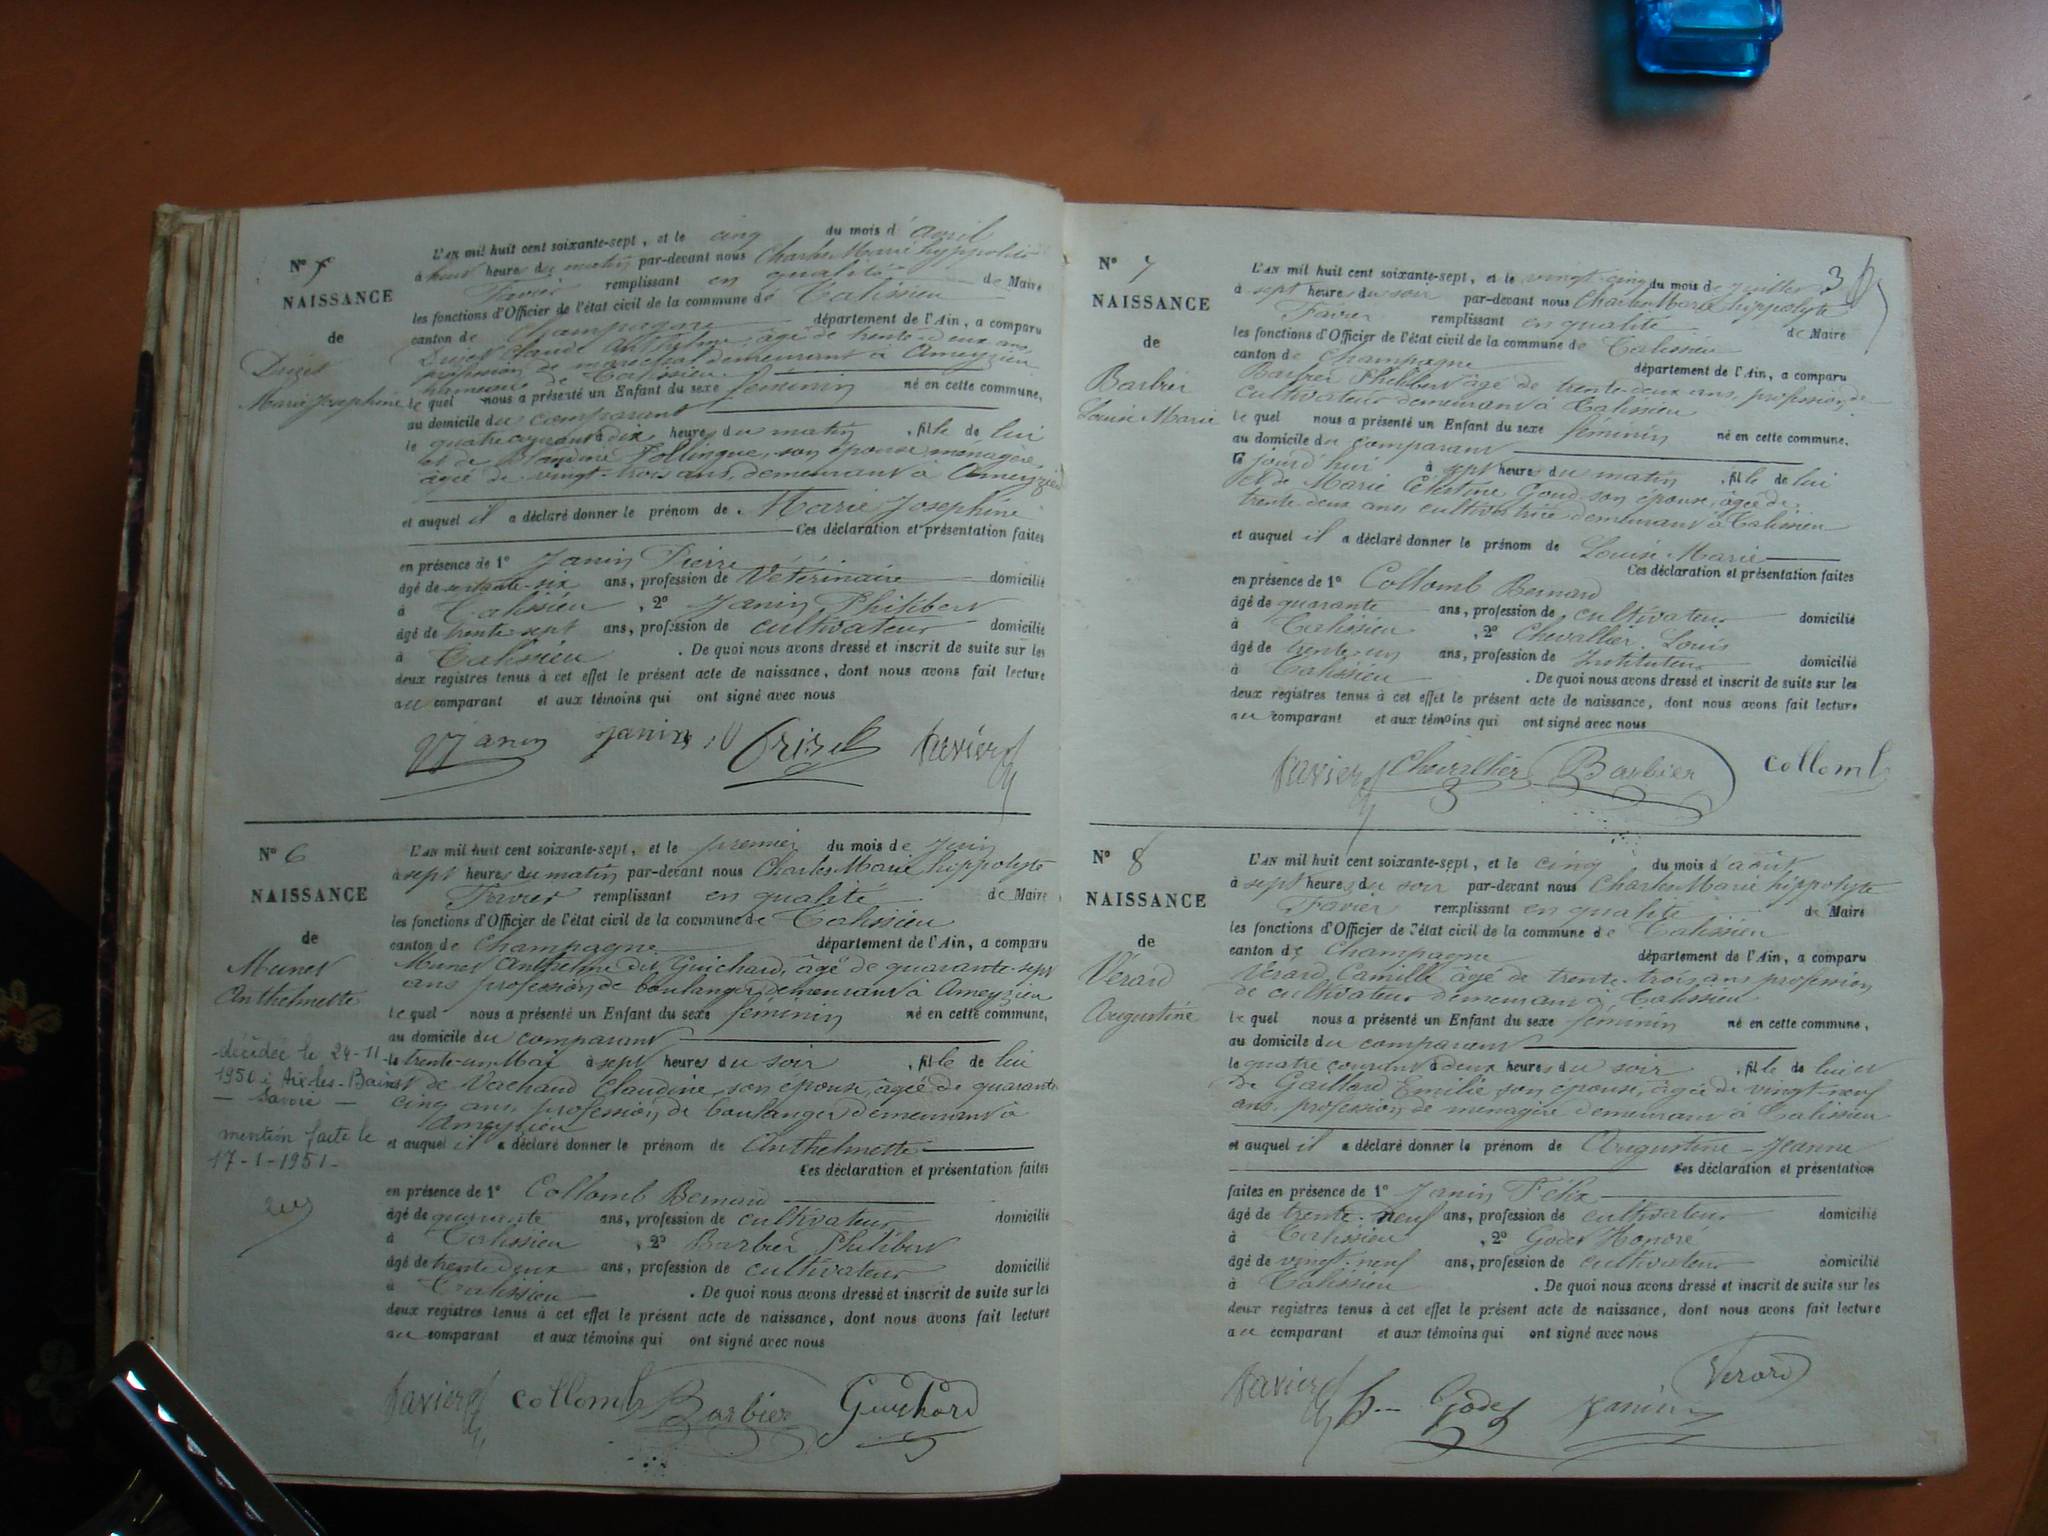 N° 5
NAISSANCE
de
Marie Josephine
L'AN mil huit cent soixante-sept, et le cinq du mois d'avril
à heure du matin par-devant nous Charles Marie hyppolite
Favier remplissant en qualité de Maire
les fonctions d'Officier de l'état civil de la commune de Talissieu
canton de Champagne département de l'Ain, a comparu
Claude Anthelme, âgé de trente deux ans,
profession de marechal demeurant à Ameyzieu
hameau de Talissieu
le quel nous a présenté un Enfant du sexe féminin né en cette commune,
au domicile du comparant
le quatre courant à dix heures du matin, fille de lui
et de Blandine Pollingue, son épouse menagère,
âgée de vingt-trois ans, demeurant à Ameyzieu
et auquel il a déclaré donner le prénom de Marie Josephine
Ces déclaration et présentation faites
en présence de 1° Janin Pierre
âgé de soixante-six ans, profession de Vétérinaire domicilié
à Talissieu, 2° Janin Philibert
âgé de trente-sept ans, profession de cultivateur domicilié
à Talissieu. De quoi nous avons dressé et inscrit de suite sur les
deux registres tenus à cet effet le présent acte de naissance, dont nous avons fait lecture
au comparant et aux témoins qui ont signé avec nous
Janin Janin favier
N° 6
NAISSANCE
de
Munet
Anthelmette
décédée le 24-11-
1950 à Aix les-Bains
- Savoie -
mention faite le
17-1-1951-
L'AN mil huit cent soixante-sept, et le premier du mois de Juin
à sept heures du matin par-devant nous Charles Marie hippolyte
Favier remplissant en qualité de Maire
les fonctions d'Officier de l'état civil de la commune de Talissieu
canton de Champagne département de l'Ain, a comparu
Munet Anthelme dit Guichard, âgé de quarante-sept
ans profession de boulanger demeurant à Ameyzieu
le quel nous a présenté un Enfant du sexe féminin né en cette commune,
au domicile du comparant
le trente-un Mai à sept heures du soir, fille de lui
et de Vachaud Claudine, son épouse, âgée de quarante
cinq ans, profession de boulanger demeurant à
Ameyzieu
et auquel il a déclaré donner le prénom de Anthelmette
Ces déclaration et présentation faites
en présence de 1° Collomb Bernard
âgé de quarante ans, profession de cultivateur domicilié
à Talissieu, 2° Barbier Philibert
âgé de trente deux ans, profession de cultivateur domicilié
à Talissieu. De quoi nous avons dressé et inscrit de suite sur les
deux registres tenus à cet effet le présent acte de naissance, dont nous avons fait lecture
au comparant et aux témoins qui ont signé avec nous
favier collomb Barbier Guichard
3
N° 7
NAISSANCE
de
Barbier
Louise Marie
L'AN mil huit cent soixante-sept, et le vingt-cinq du mois de Juillet
à sept heures du soir par-devant nous Charles Marie hippolyte
Favier remplissant en qualité de Maire
les fonctions d'Officier de l'état civil de la commune de Talissieu
canton de Champagne département de l'Ain, a comparu
Barbier Philibert âgé de trente-deux ans, profession de
cultivateur demeurant à Talissieu
le quel nous a présenté un Enfant du sexe féminin né en cette commune.
au domicile du comparant
jourd'hui à sept heures du matin, fille de lui
et de Marie Célestine Goud son épouse, âgée de
trente deux ans cultivatrice demeurant à Talissieu
et auquel il a déclaré donner le prénom de Louise Marie
Ces déclaration et présentation faites
en présence de 1° Collomb Bernard
âgé de quarante ans, profession de cultivateur domicilié
à Talissieu, 2° Chevallier Louis
âgé de trente-un ans, profession de Instituteur domicilié
à Talissieu. De quoi nous avons dressé et inscrit de suite sur les
deux registres tenus à cet effet le présent acte de naissance, dont nous avons fait lecture
au comparant et aux témoins qui ont signé avec nous
favier Chevallier Barbier collomb
N° 8
NAISSANCE
de
Vérard
Augustine
L'AN mil huit cent soixante-sept, et le cinq du mois d'août
à sept heures du soir par-devant nous Charles Marie hippolyte
Favier remplissant en qualité de Maire
les fonctions d'Officier de l'état civil de la commune de Talissieu
canton de Champagne département de l'Ain, a comparu
Vérard Camille âgé de trente-trois ans profession
de cultivateur demeurant à Talissieu
le quel nous a présenté un Enfant du sexe féminin né en cette commune,
au domicile du comparant
le quatre courant à deux heures du soir, fille de lui et
de Gaillard Emilie son épouse, âgée de vingt-neuf
ans, profession de menagère demeurant à Talissieu
et auquel il a déclaré donner le prénom de Augustine-Jeanne
Ces déclaration et présentation
faites en présence de 1° Janin Félix
âgé de trente-neuf ans, profession de cultivateur domicilié
à Talissieu, 2° Godet Honoré
âgé de vingt-neuf ans, profession de cultivateur domicilié
à Talissieu. De quoi nous avons dressé et inscrit de suite sur les
deux registres tenus à cet effet le présent acte de naissance, dont nous avons fait lecture
au comparant et aux témoins qui ont signé avec nous
favier Godet Janin Verard